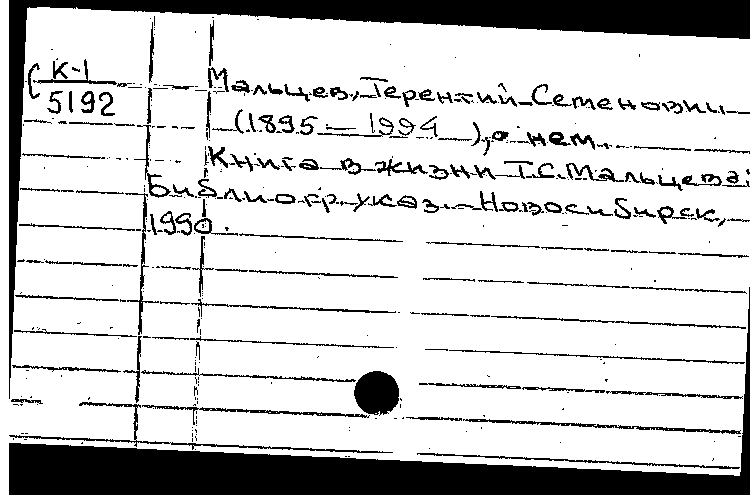 К-1
5192
Мальцев, Терентий Семенович
(1895 – 1994), о нем.
Книга в жизни Т.С. Мальцева:
Библиогр. указ. – Новосибирск,
1990.